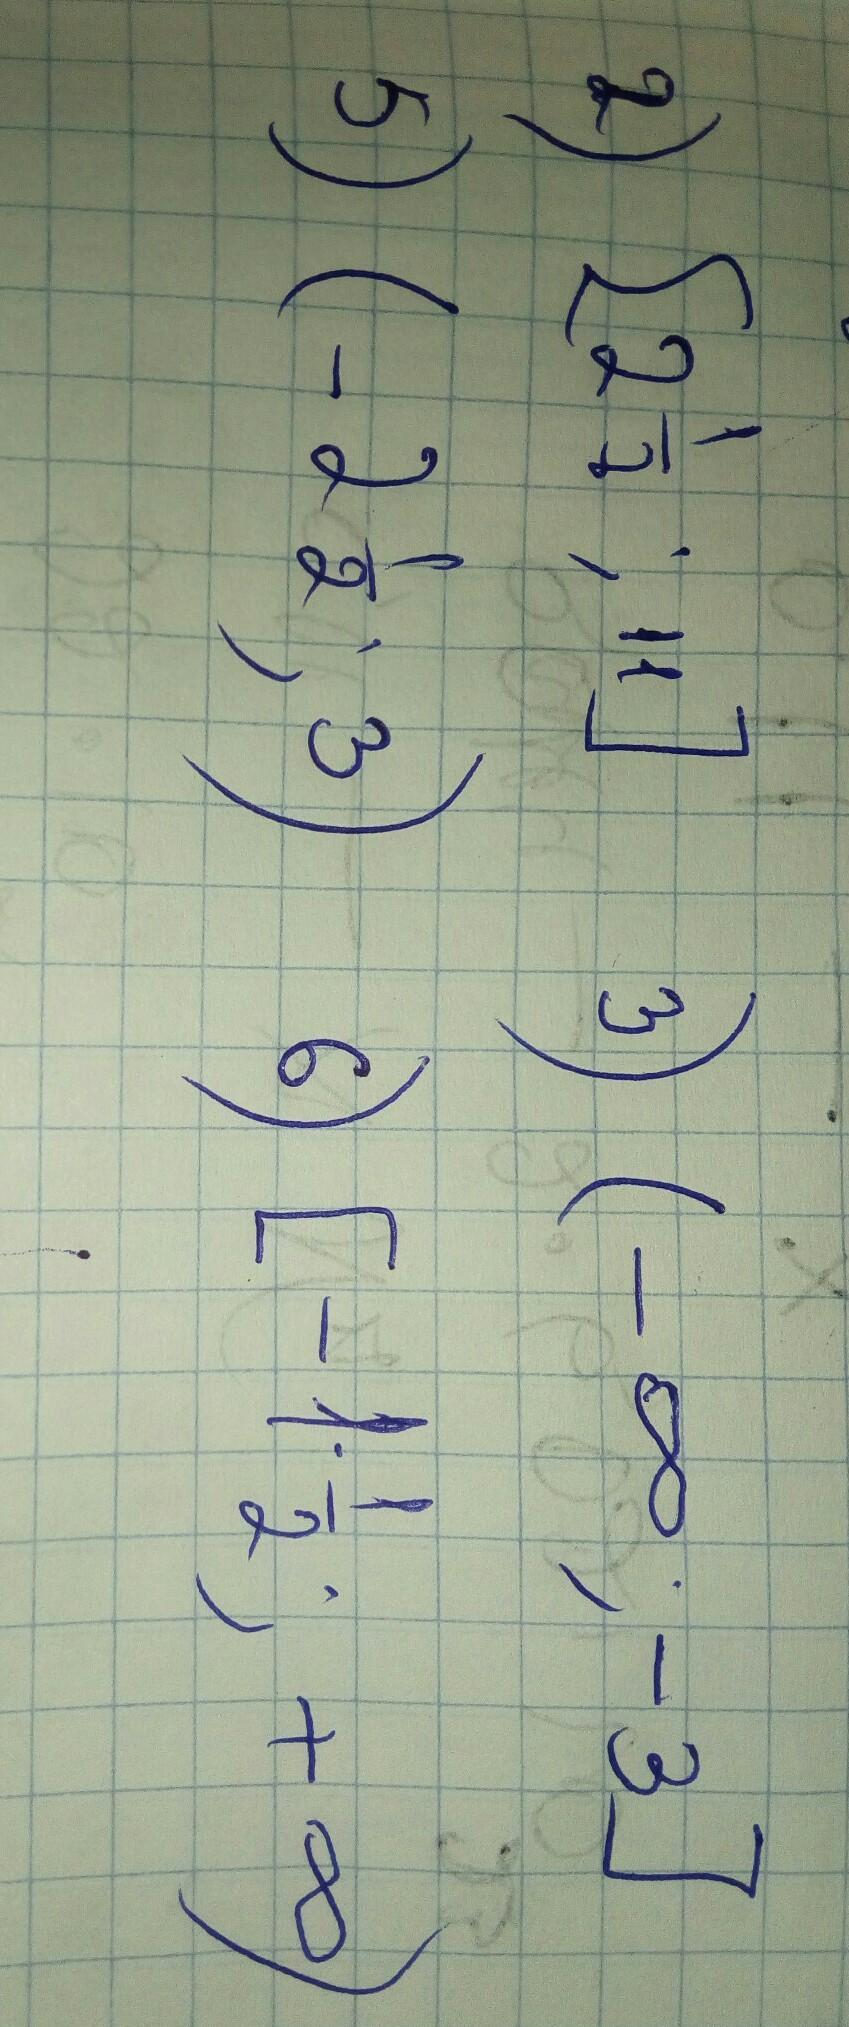 2) [2 1/2; 11] 3) (-∞; -3]
5) (-2 1/2; 3) 6) [-1 1/2; +∞)